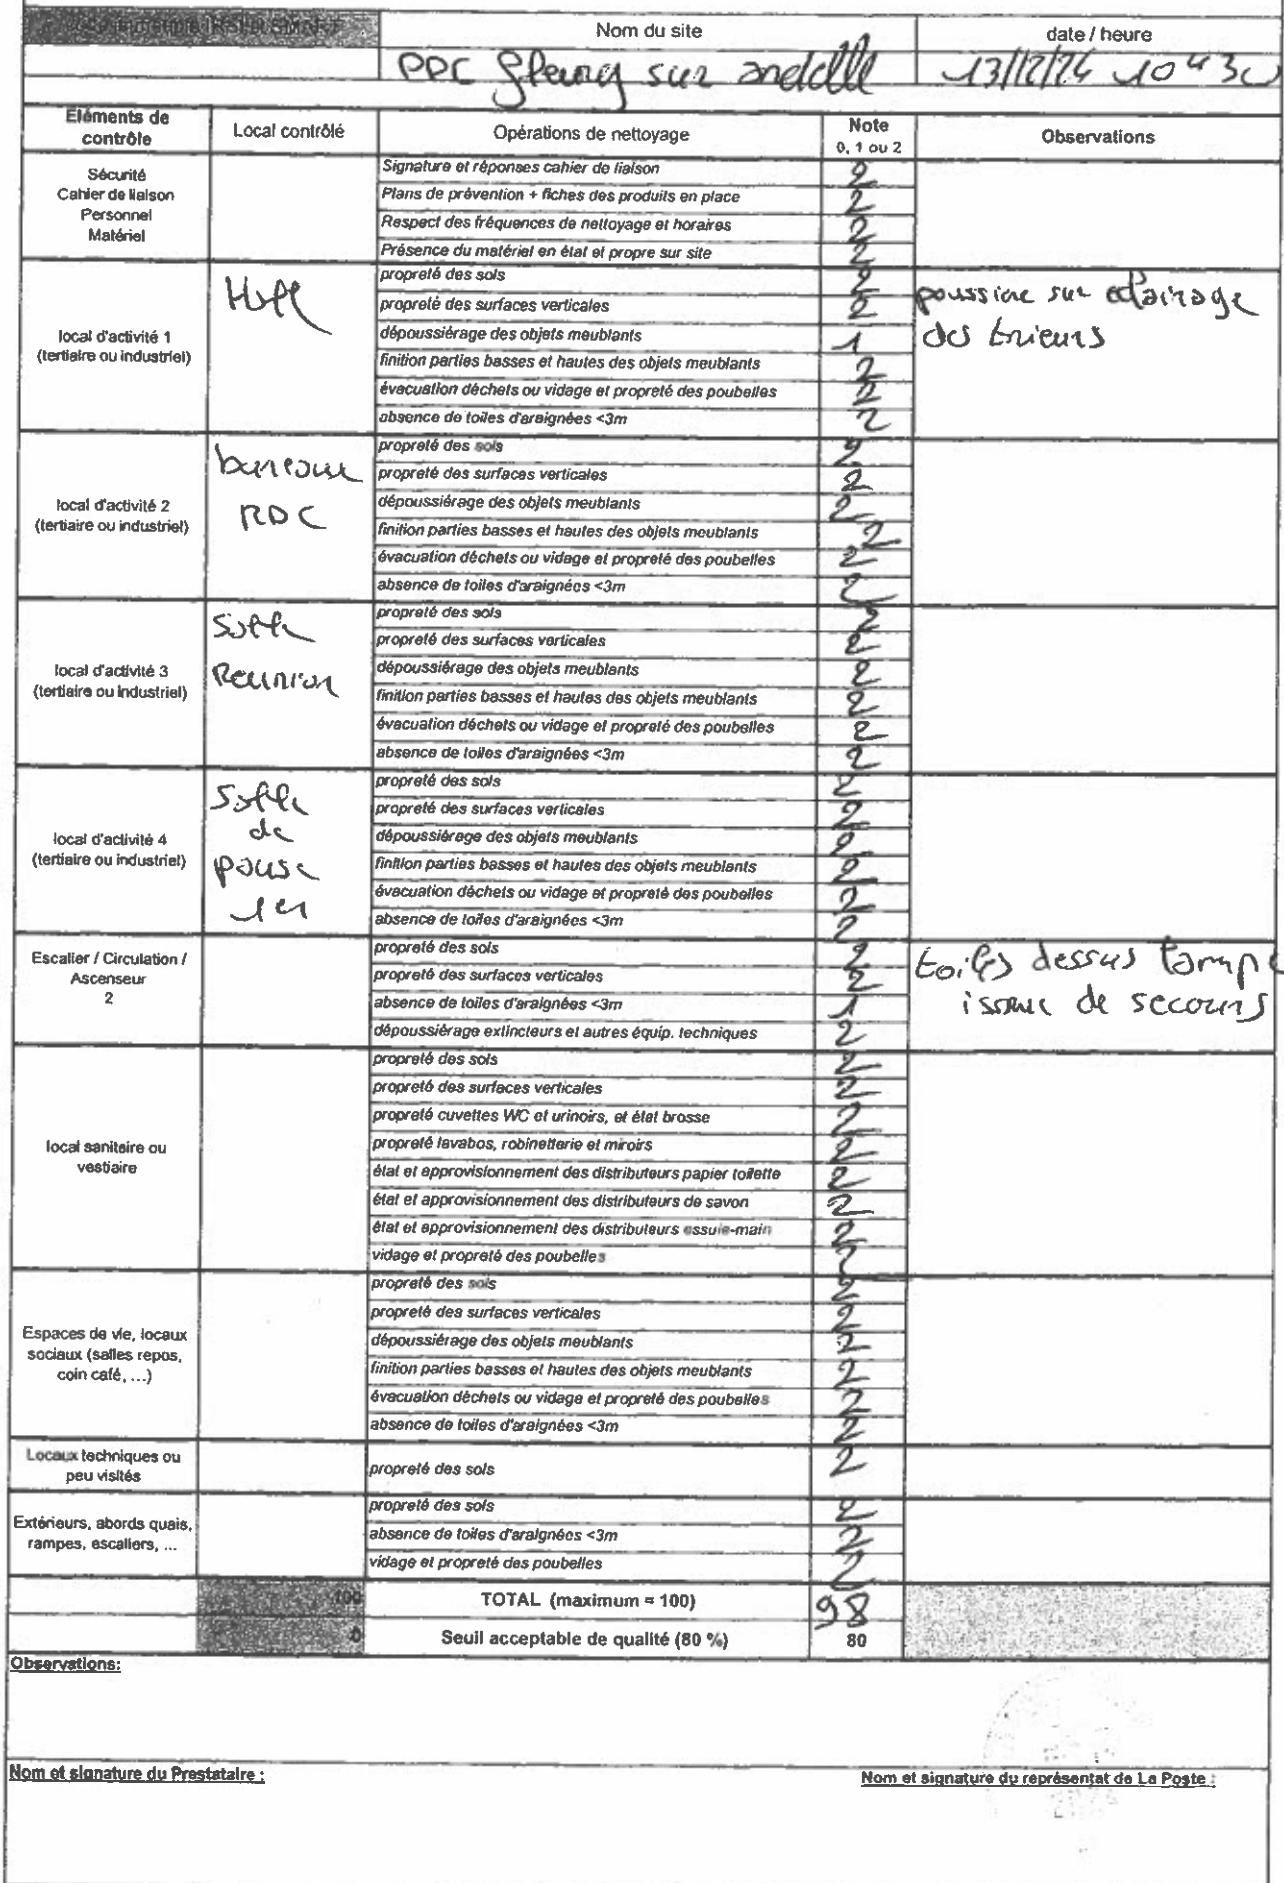 Nom du site
date / heure
PPC fleury sur andelle
13/12/24 10H30
Eléments de contrôle
Local contrôlé
Opérations de nettoyage
Note
0, 1 ou 2
Observations
Sécurité
Cahier de liaison
Personnel
Matériel
Signature et réponses cahier de liaison 2
Plans de prévention + fiches des produits en place 2
Respect des fréquences de nettoyage et horaires 2
Présence du matériel en état et propre sur site 2
local d'activité 1
(tertiaire ou industriel)
Hall
propreté des sols 2
propreté des surfaces verticales 2
dépoussiérage des objets meublants 1
finition parties basses et hautes des objets meublants 2
évacuation déchets ou vidage et propreté des poubelles 2
absence de toiles d'araignées <3m 2
poussiere sur eclairage
des trieurs
local d'activité 2
(tertiaire ou industriel)
bureaux
RDC
propreté des sols 2
propreté des surfaces verticales 2
dépoussiérage des objets meublants 2
finition parties basses et hautes des objets meublants 2
évacuation déchets ou vidage et propreté des poubelles 2
absence de toiles d'araignées <3m 2
local d'activité 3
(tertiaire ou industriel)
Salle
Reunion
propreté des sols 2
propreté des surfaces verticales 2
dépoussiérage des objets meublants 2
finition parties basses et hautes des objets meublants 2
évacuation déchets ou vidage et propreté des poubelles 2
absence de toiles d'araignées <3m 2
local d'activité 4
(tertiaire ou industriel)
Salle
de
pause
1er
propreté des sols 2
propreté des surfaces verticales 2
dépoussiérage des objets meublants 2
finition parties basses et hautes des objets meublants 2
évacuation déchets ou vidage et propreté des poubelles 2
absence de toiles d'araignées <3m 2
Escalier / Circulation /
Ascenseur
2
propreté des sols 2
propreté des surfaces verticales 2
absence de toiles d'araignées <3m 1
dépoussiérage extincteurs et autres équip. techniques 2
toiles dessus lampe
issue de secours
local sanitaire ou
vestiaire
propreté des sols 2
propreté des surfaces verticales 2
propreté cuvettes WC et urinoirs, et état brosse 2
propreté lavabos, robinetterie et miroirs 2
état et approvisionnement des distributeurs papier toilette 2
état et approvisionnement des distributeurs de savon 2
état et approvisionnement des distributeurs essuie-main 2
vidage et propreté des poubelles 2
Espaces de vie, locaux
sociaux (salles repos,
coin café, ...)
propreté des sols 2
propreté des surfaces verticales 2
dépoussiérage des objets meublants 2
finition parties basses et hautes des objets meublants 2
évacuation déchets ou vidage et propreté des poubelles 2
absence de toiles d'araignées <3m 2
Locaux techniques ou
peu visités
propreté des sols 2
Extérieurs, abords quais,
rampes, escaliers, ...
propreté des sols 2
absence de toiles d'araignées <3m 2
vidage et propreté des poubelles 2
100
TOTAL (maximum = 100)
98
0
Seuil acceptable de qualité (80 %)
80
Observations:
Nom et signature du Prestataire :
Nom et signature du représentat de La Poste :